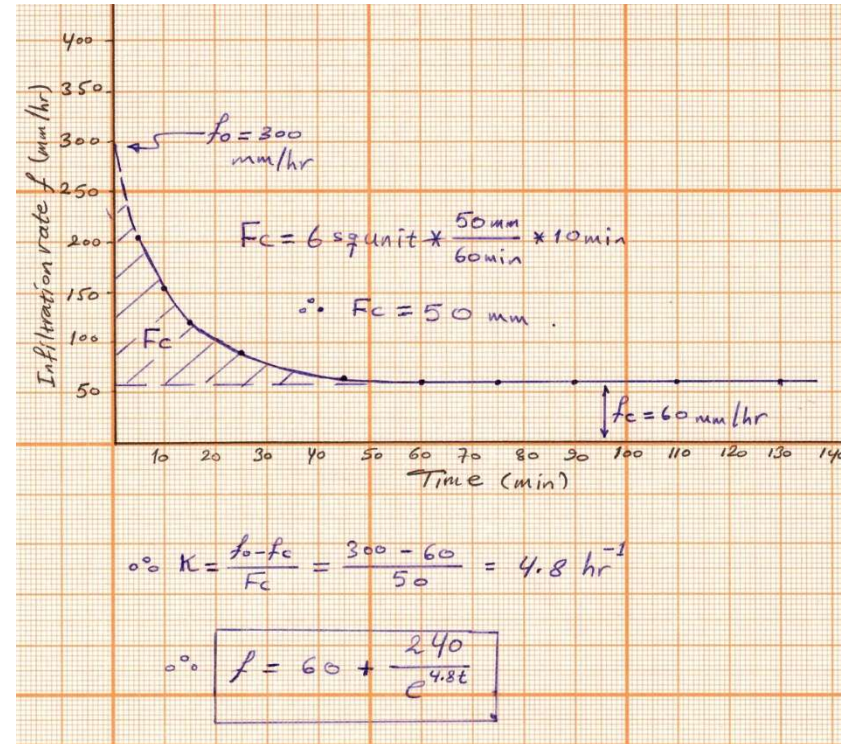 400
350
300
250
200
150
100
50
Infiltration rate f (mm/hr)
f₀ = 300
mm/hr
Fc = 6 sq unit * 50 mm / 60 min * 10 min
∴ Fc = 50 mm.
Fc
fc = 60 mm/hr
10 20 30 40 50 60 70 80 90 100 110 120 130 140
Time (min)
∴ K = f₀-fc / Fc = 300 - 60 / 50 = 4.8 hr⁻¹
∴ f = 60 + 240 / e^4.8t